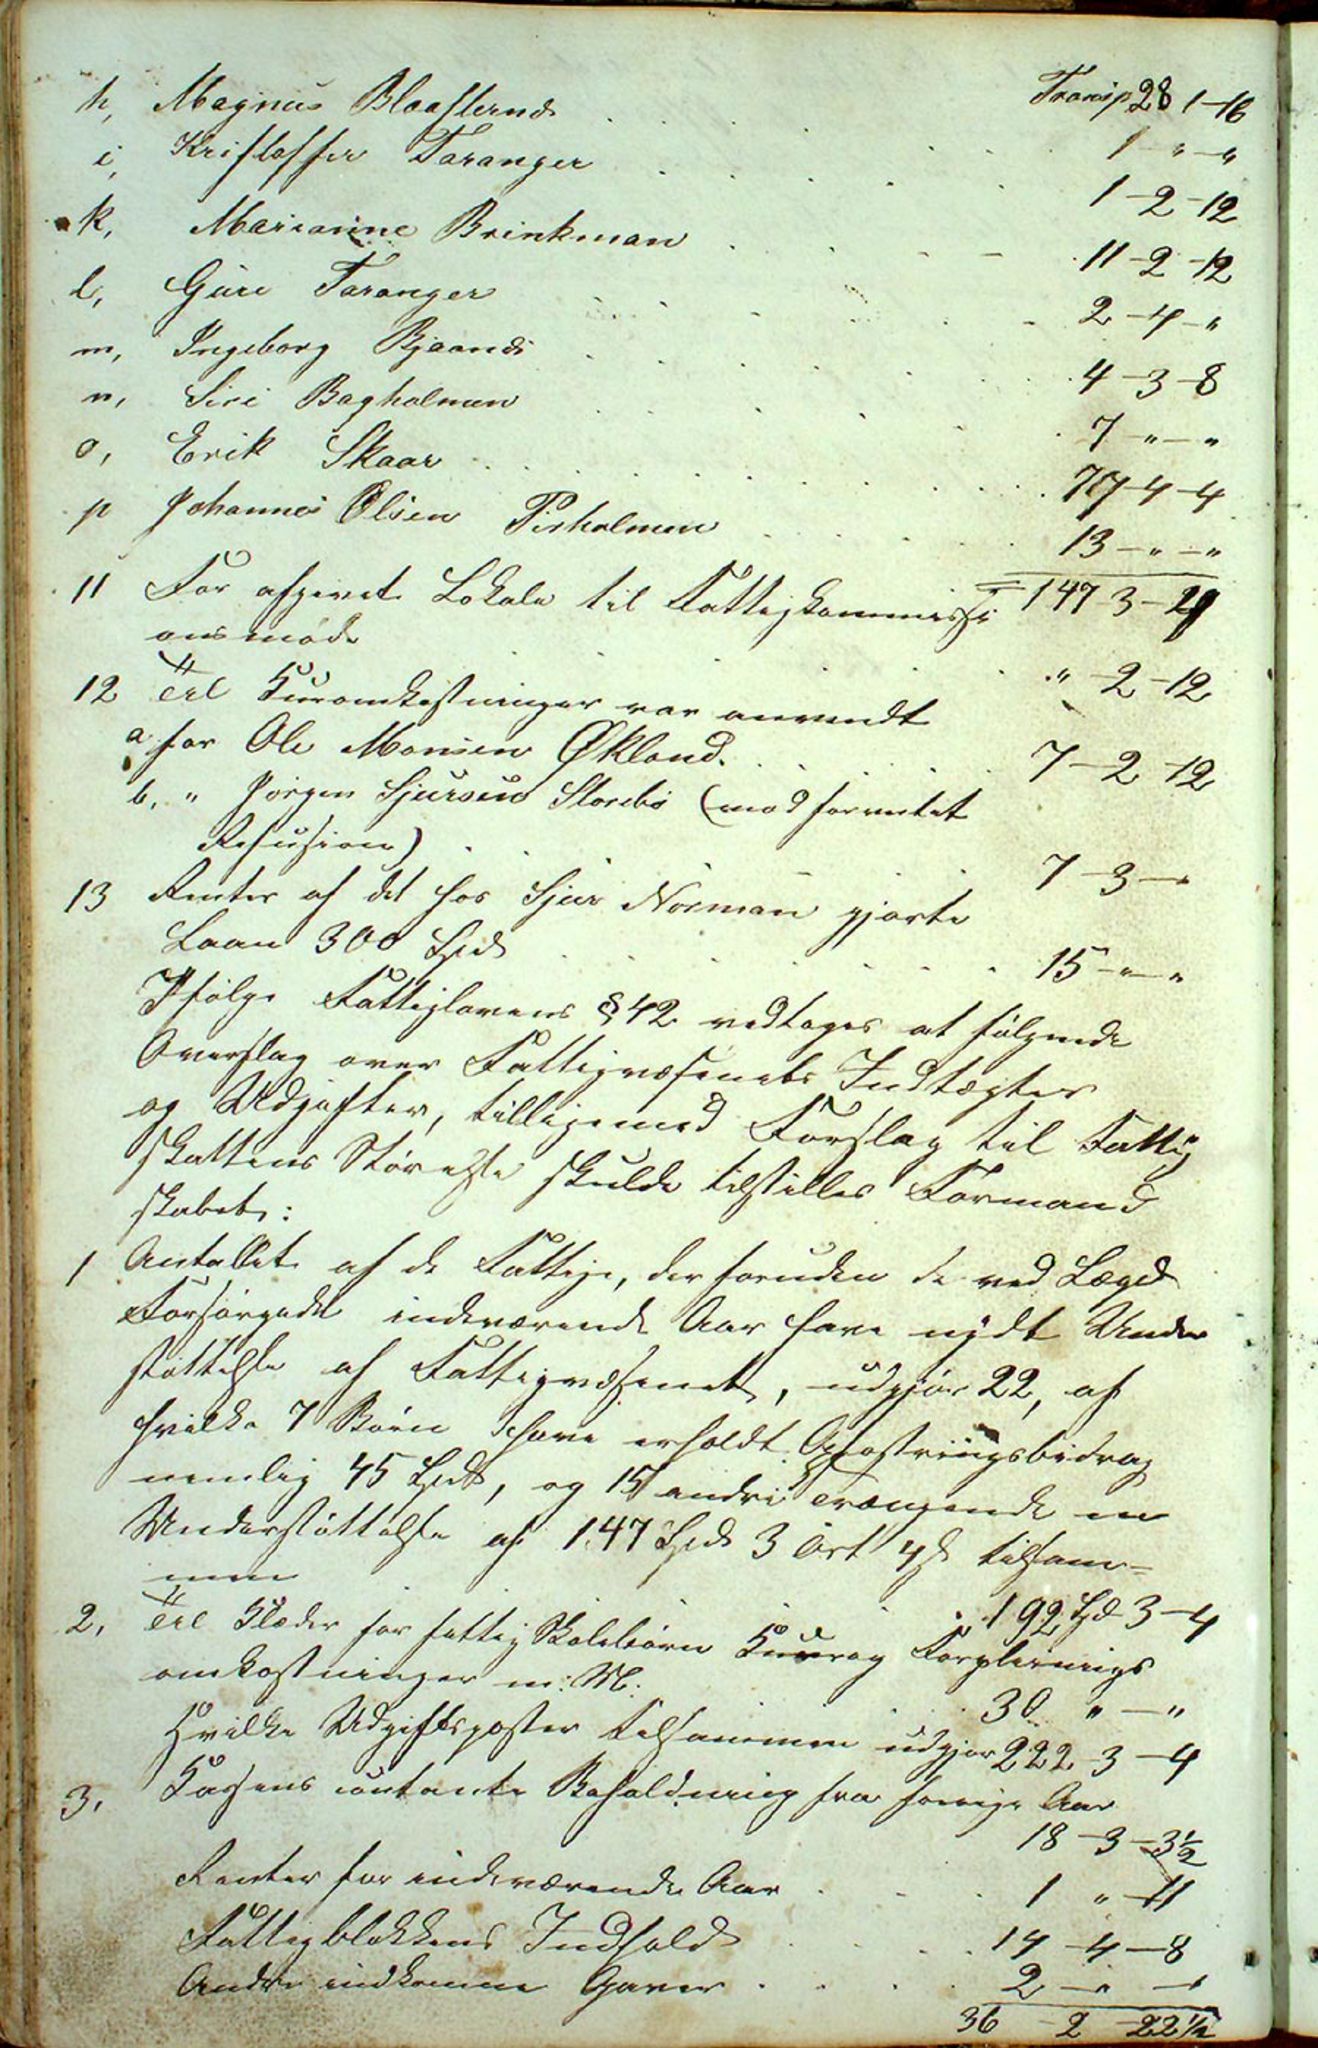 Transp 28 1-16
h, Magnus Blaaflernd . . . . 1 " - "
i, Kristoffer Taranger . . . . 1 - 2 - 12
k, Marianne Brinkman . . . . 11 - 2 - 12
l, Guri Taranger . . . . 2 - 4 - "
m, Ingeborg Bjaanæs . . . . 4 - 3 - 8
n, Siri Bagholmen . . . . 7 " - "
o, Erik Skaar . . . . 77 - 4 - 4
p Johannes Olsen Pirholmen . . . . 13 - " - "
11 For afgivet Lokale til Fattigkommissi = 147 - 3 -
onsmøde . . . . " - 2 - 12
12 Til Kuromkostninger var anvendt
a for Ole Monsen Økland . . . . 7 - 2 - 12
b, " Jørgen Sjursen Storebø (mod forventet
Refusion) . . . . 7 - 3 - "
13 Renter af det hos Sjur Norman gjorte
Laan 300 Spd . . . . 15 - " - "
Ifølge Fattiglovens § 42 vedtages at følgende
Overslag over Fattigvæsenets Indtægter
og Udgifter, tilligemed Forslag til Fattig
skattens Størrelse skulde tilstilles Formand
skabet:
1 Antallet af de Fattige, der foruden de ved Lægd
Forsørgede indeværende Aar have nydt Under
støttelse af Fattigvæsenet, udgjør 22, af
hvilke 7 Børn have erholdt Opfostringsbidrag
nemlig 45 Spd, og 15 andre Trængende en
Understøttelse af 147 Spd 3 Ort 4 s tilsam-
men . . 192 Spd 3 - 4
2, Til Klæder for fattig Skolebørn Kur og Forpleinings
omkostninger m: M: . . 30 " - "
Hvilke Udgiftsposter tilsammen udgjør 222 - 3 - 4
3, Kassens contante Beholdning fra forrige Aar
18 - 3 - 3½
Renter for indeværende Aar . . . 1 " - 11
Fattigblokkens Indhold . . . . 14 - 4 - 8
Andre indkomne Gaver . . . . 2 - " - "
36 - 2 - 22½